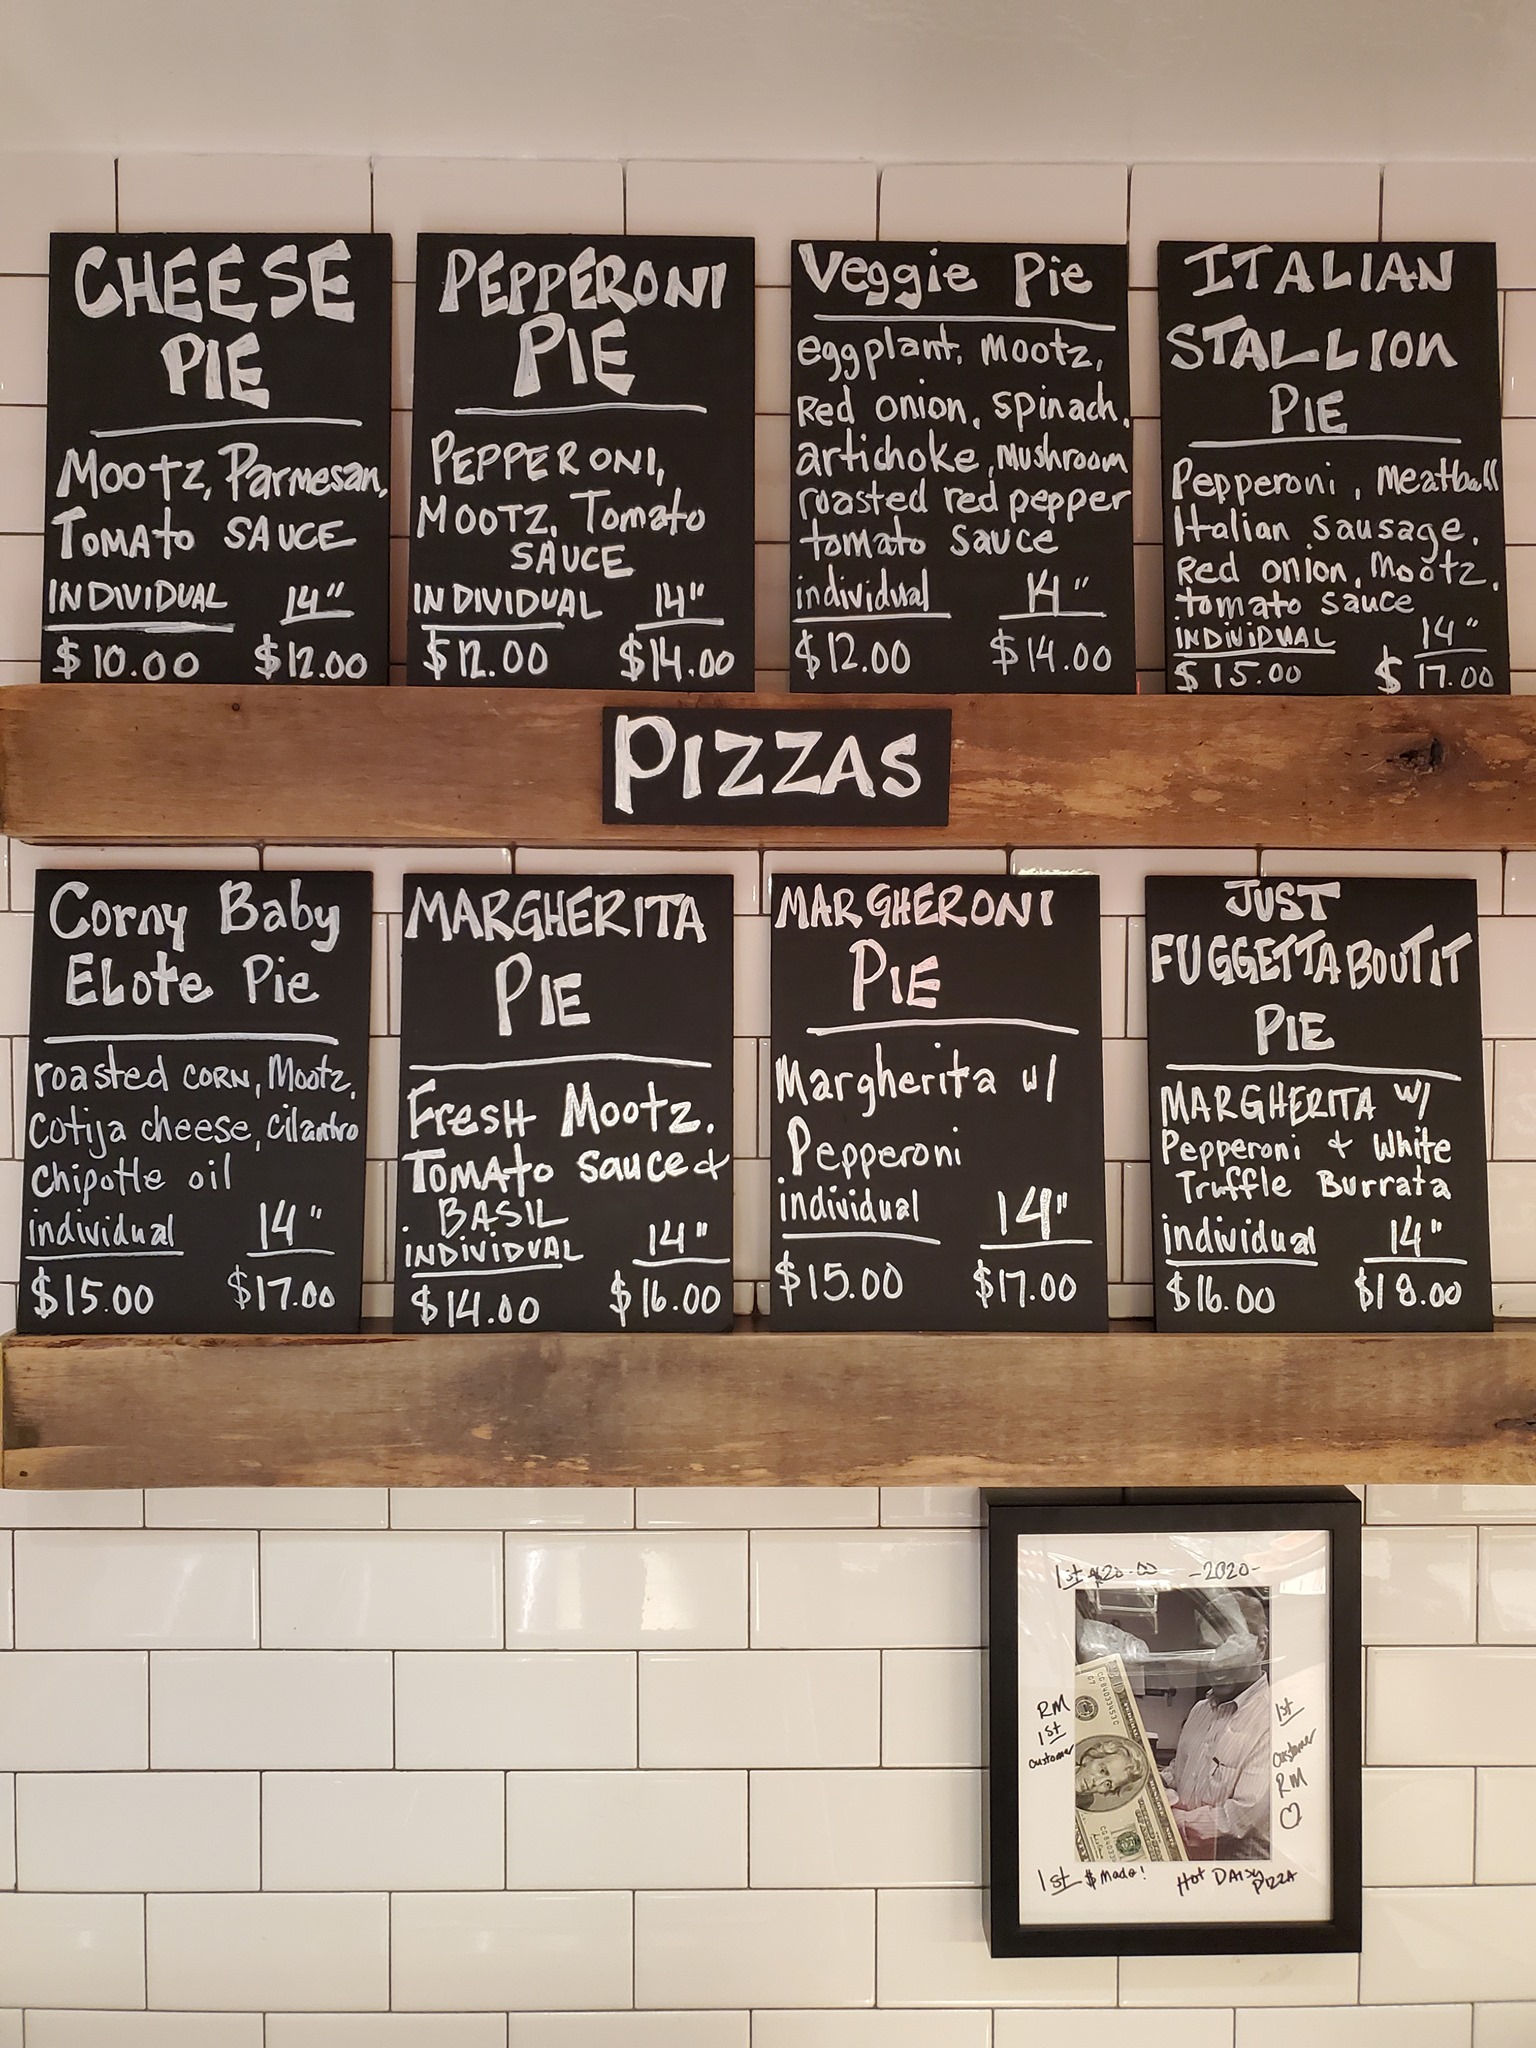 CHEESE
PIE
Mootz, Parmesan,
TOMATO SAUCE
INDIVIDUAL 14"
$10.00 $12.00
PEPPERONI
PIE
PEPPERONI,
MOOTZ, Tomato
SAUCE
INDIVIDUAL 14"
$12.00 $14.00
Veggie Pie
eggplant, mootz,
Red onion, spinach,
artichoke, mushroom
roasted red pepper
tomato sauce
individual 14"
$12.00 $14.00
ITALIAN
STALLION
PIE
Pepperoni, meatball
Italian sausage,
Red onion, mootz,
tomato sauce
INDIVIDUAL 14"
$15.00 $17.00
PIZZAS
Corny Baby
Elote Pie
roasted CORN, Mootz,
Cotija cheese, cilantro
Chipotle oil
individual 14"
$15.00 $17.00
MARGHERITA
PIE
FRESH Mootz,
TOMATO Sauce &
BASIL
INDIVIDUAL 14"
$14.00 $16.00
MARGHERONI
PIE
Margherita w/
Pepperoni
individual 14"
$15.00 $17.00
JUST
FUGGETTABOUTIT
PIE
MARGHERITA w/
Pepperoni & White
Truffle Burrata
individual 14"
$16.00 $18.00
1st $20.00 -2020-
RM
1st
customer
1st
customer
RM
1st $ made! Hot DAISY
PIZZA